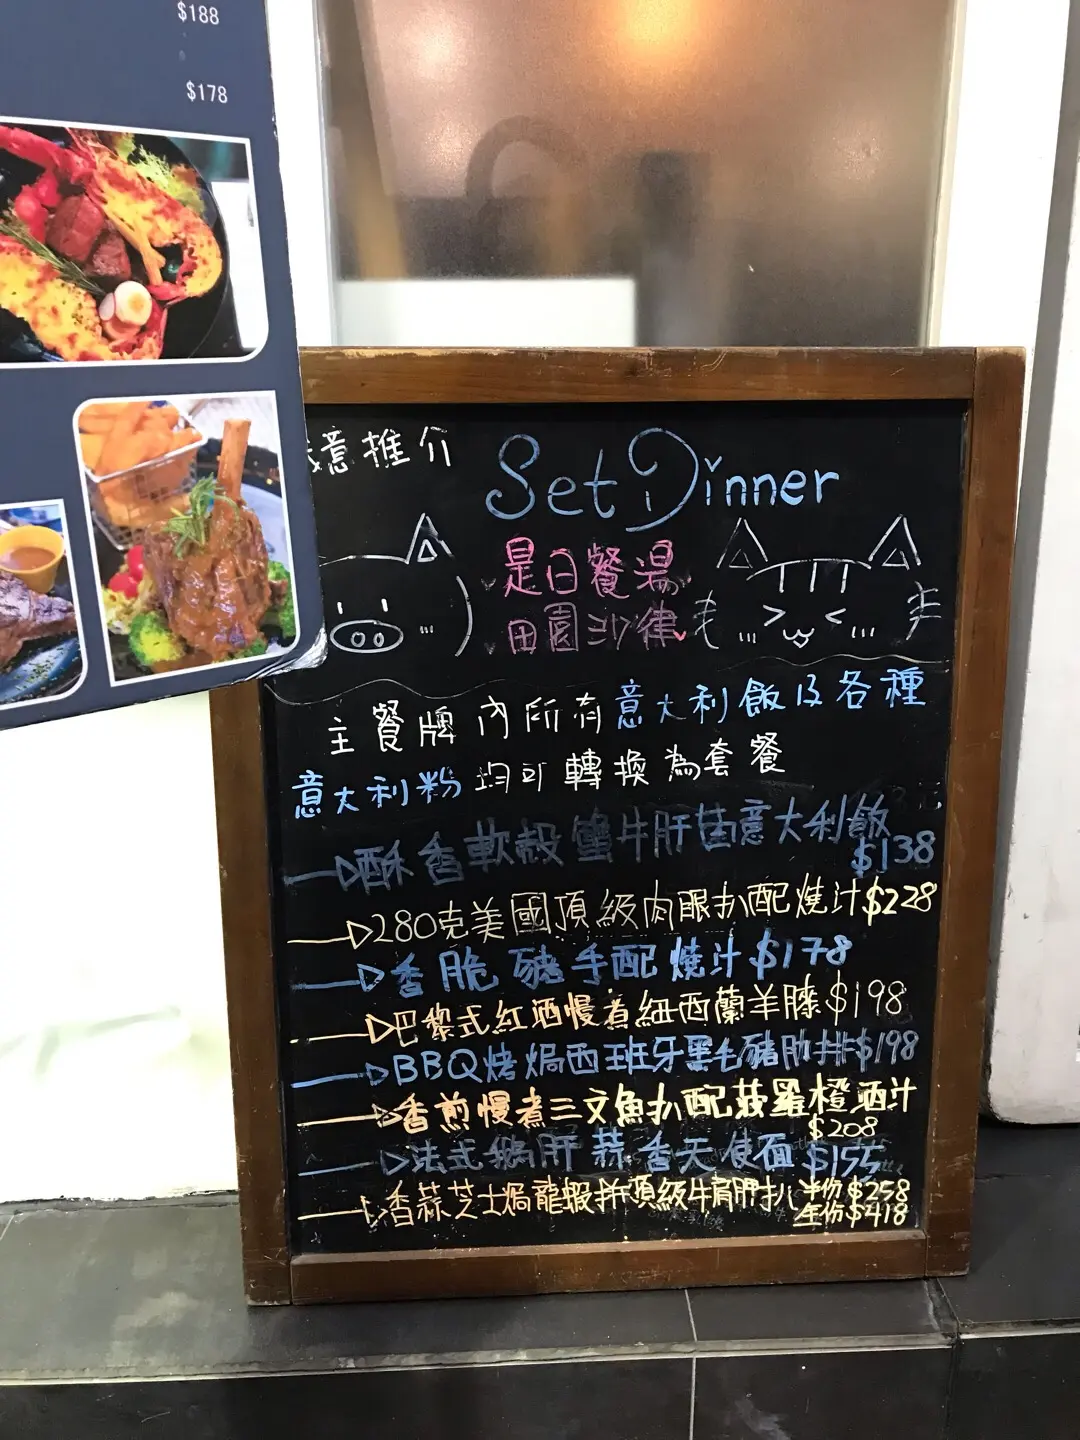 $188
$178
意推介
Set Dinner
是日餐湯
田園沙律
主餐牌內所有意大利飯及各種
意大利粉均可轉換為套餐
酥香軟殼蟹牛肝菌意大利飯
$138
280克美國頂級肉眼扒配燒汁$228
香脆豬手配燒汁$178
巴黎式紅酒慢煮紐西蘭羊膝$198
BBQ烤焗西班牙黑毛豬肋排$198
香煎慢煮三文魚扒配菠蘿橙酒汁
$208
法式鵝肝蒜香天使面$155
香蒜芝士焗龍蝦拼頂級牛肩胛扒半份$258
全份$418